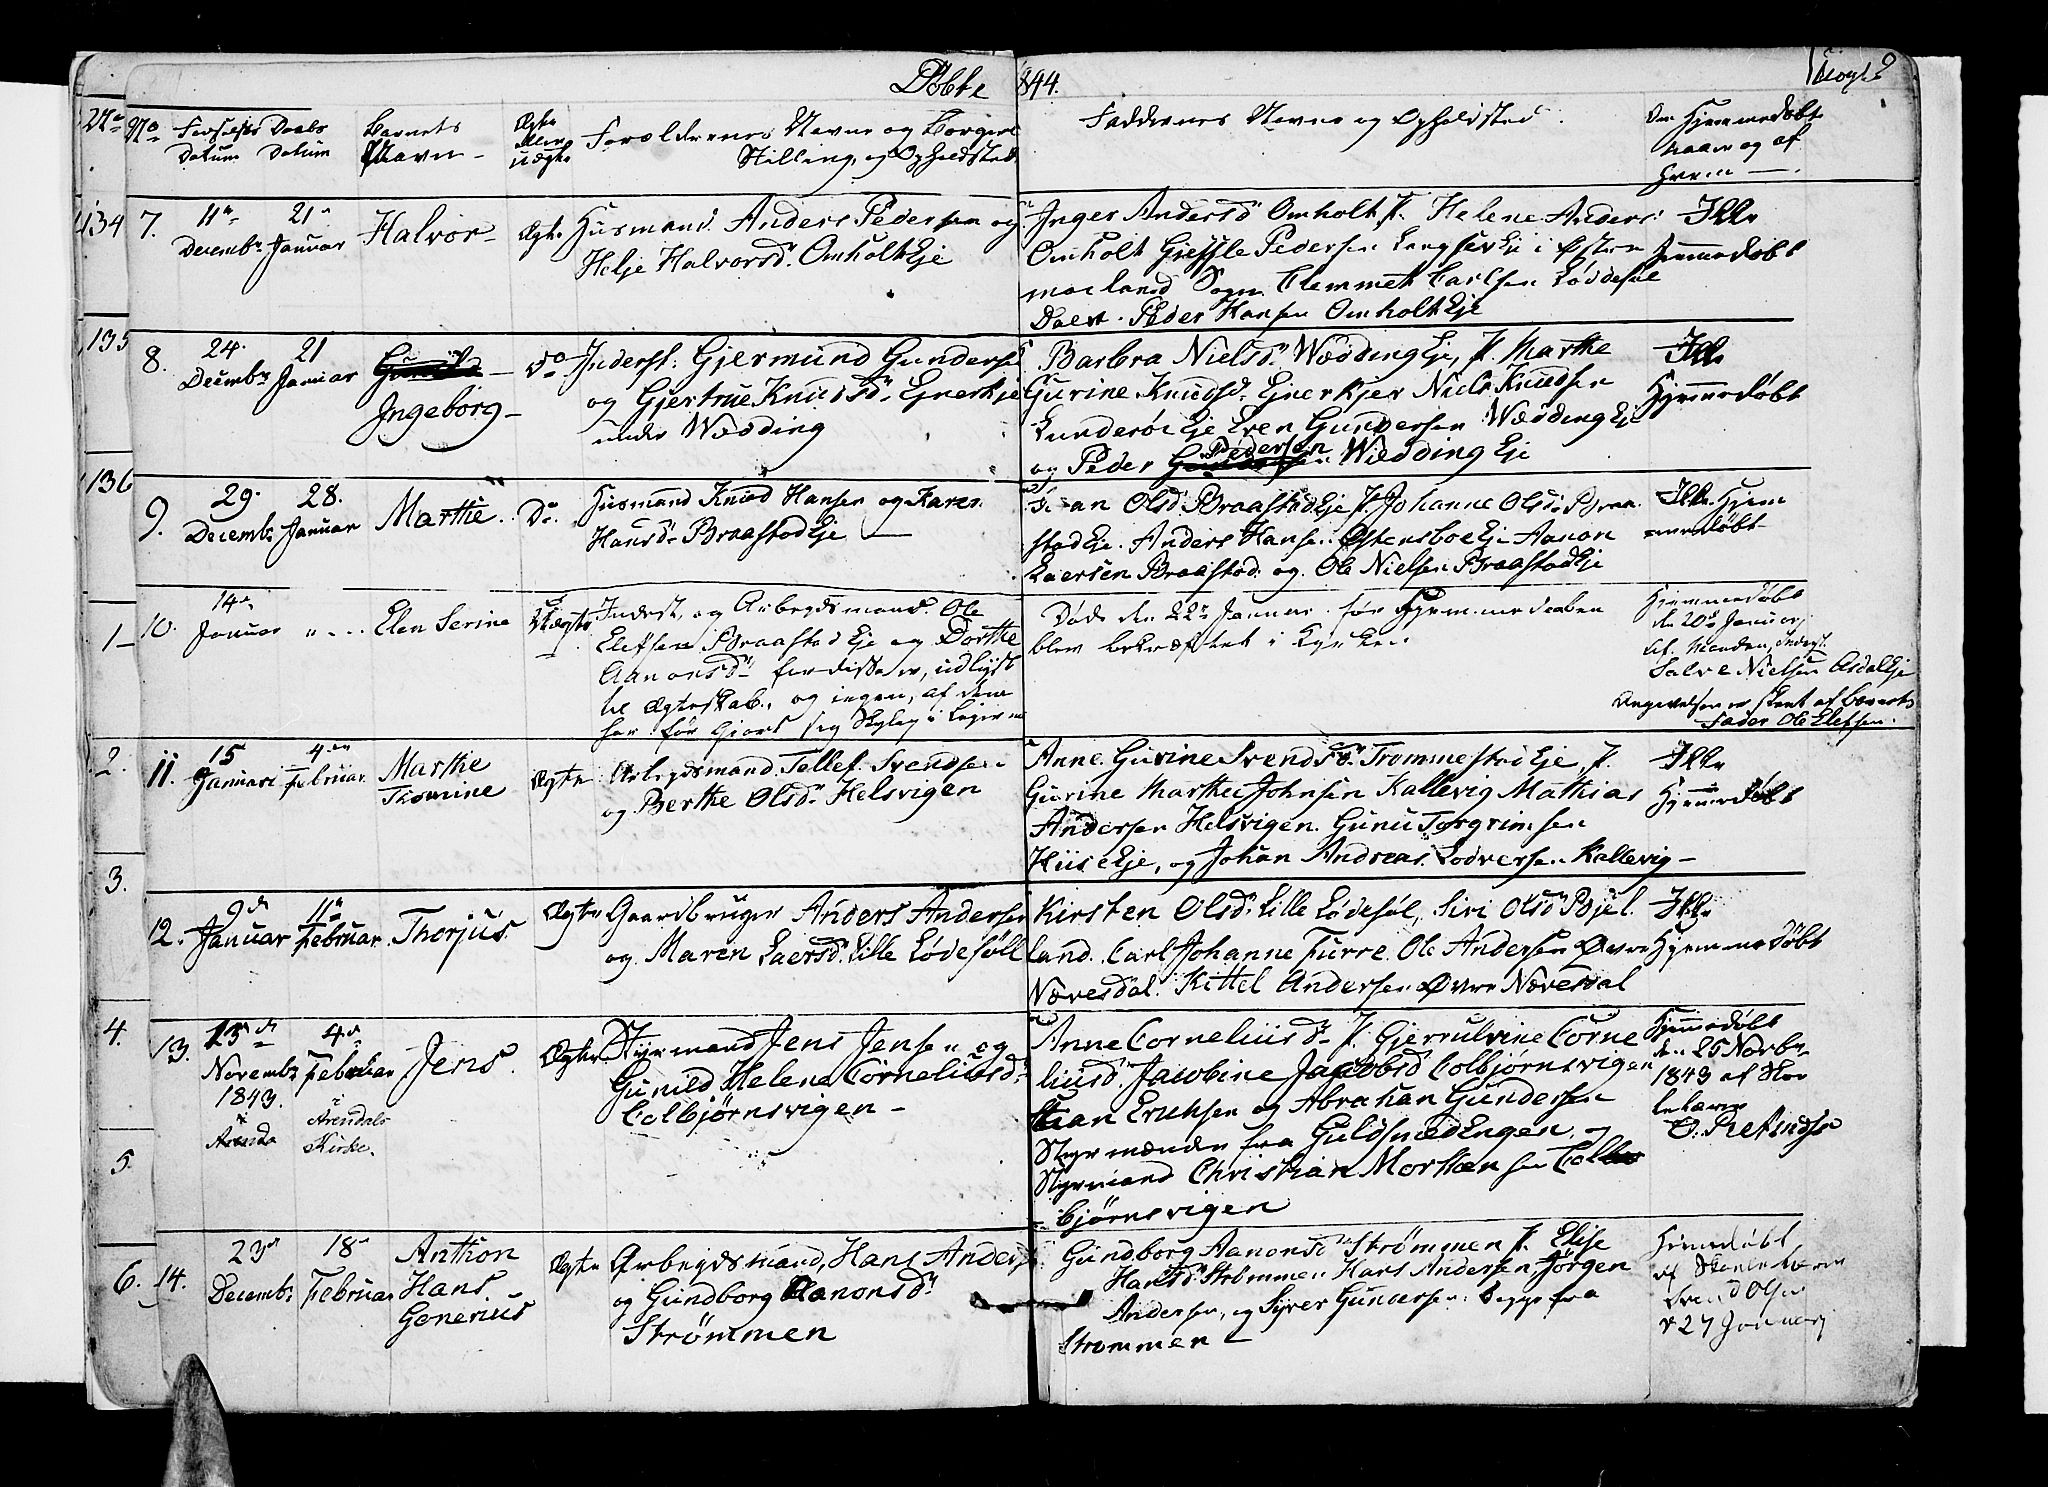 Døbte 1844.
No
No
Fødsels Datum
Daabs Datum
Barnets Navn
Ægte eller uægte
Forældrenes Navne og Borgerl.
Stilling, og Opholdsted
Faddernes Navne og Opholdsted.
Om Hjemmedøbt
naar og af
hvem
134 7. 11te Decembr 21de Januar Halvor Ægte
Husmand Anders Pedersen og
Helje Halvorsd. Omholt Eje
Inger Andersd Omholt J. Helene Anders:
Omholt Gjeruld Pedersen Langsev Eje i Østre
moeland Sogn Clemmet Carlsen Løddesøl
Peder Hansen Omholt Eje
Ikke
Hjemmedøbt
135 8. 24. Decembr 21 Januar Ingeborg Do
Inderst: Gjermund Gunders
og Gjertrue Knudsd. Ejnerkjer
under Wædding
Barbra Nielsd. Wædding Eje, J. Marthe
Gurine Knudsd. Ejnerkjer Niels Knudsen
Eje Even Gundersen Wædding Eje
og Peder Pedersen Wædding Eje
Ikke
Hjemmedøbt
136 9. 29. Decembr 28. Januar Marthe. Do.
Husmand Knud Hansen og Karen
Hansd. Braastad Eje
Olsd. Braastad Eje J. Johanne Olsd. Braa
stad Eje. Anders Hansen Østensboe Eje Aanon
Laersen Braastad og Ole Nielsen Braastad Eje
Ikke Hjem
medøbt
1 10. 14de Januar Elen Serine Uægte
Inderst og Arbeydsmand Ole
Elefsen Braastad Eje og Dorthe
Aanonsd.
til Ægteskab, og ingen, af dem
har før gjort sig Skyldig i Lejerm
Døde den 22de Januar før Hjemmedaaben
blev bekræftet i Kirken.
Hjemmedøbt
den 20de Januar
Salve Nielsen Asdal Eje
Angivelsen er skeet af Barnets
Fader Ole Elefsen.
2. 11. 15 Januari 4den Februar Marthe
Thomine Ægte
Arbeydsmand Tellef Svendsen
og Berthe Olsd. Helsvigen
Anne Gurine Svendsd. Trommestad Eje, J.
Gurine Marthe Johnsen Kallevig Mathias
Andersen Helsvigen. Gunu Torgrimsen
Hiis Eje, og Johan Andreas Lodversen Kallevig
Ikke
Hjemmedøbt
3. 12. 9de Januar 11te Februar Thorjus Ægte
Gaardbruger Anders Andersen
og Maren Laersd. Lille Lødesøll
Kirsten Olsd. Lille Lødesøl, Siri Olsd Bjel
land. Carl Johanne Furre. Ole Andersen Øvre
Næresdal. Kittel Andersen Øvre Næresdal
Ikke
Hjemmedøbt
4. 13. 23de Novembr 1843. 4de Februar i Arendals Kirke. Jens. Ægte
Styrmand Jens Jensen og
Gunild Helene Corneliusd.
Colbjørnsvigen
Anne Corneliusd. J. Gjerrulvine Corne
liusd. Jacobine Jacobsd Colbjørnsvigen
Erichsen og Abraham Gundersen
Styrmænder fra Guldsmedengen, og
Styrmand Christian Mortensen Col
bjørnsvigen
Hjemmedøbt
den 25 Novbr
1843 af Sko
lelærer
5.
6. 14. 23de Decembr 18de Februar Anthon
Hans
Generius Ægte
Arbeydsmand, Hans Anders
og Gundborg Aanonsd.
Strømmen
Gundborg Aanonsd Strømmen J. Elise
Hansd. Strømmen Hans Andersen, Jørgen
Andersen, og Syver Gundersen begge fra
Strømmen
Hjemmedøbt
af Skolelærer
Svend Olsen
d 27 Januarj